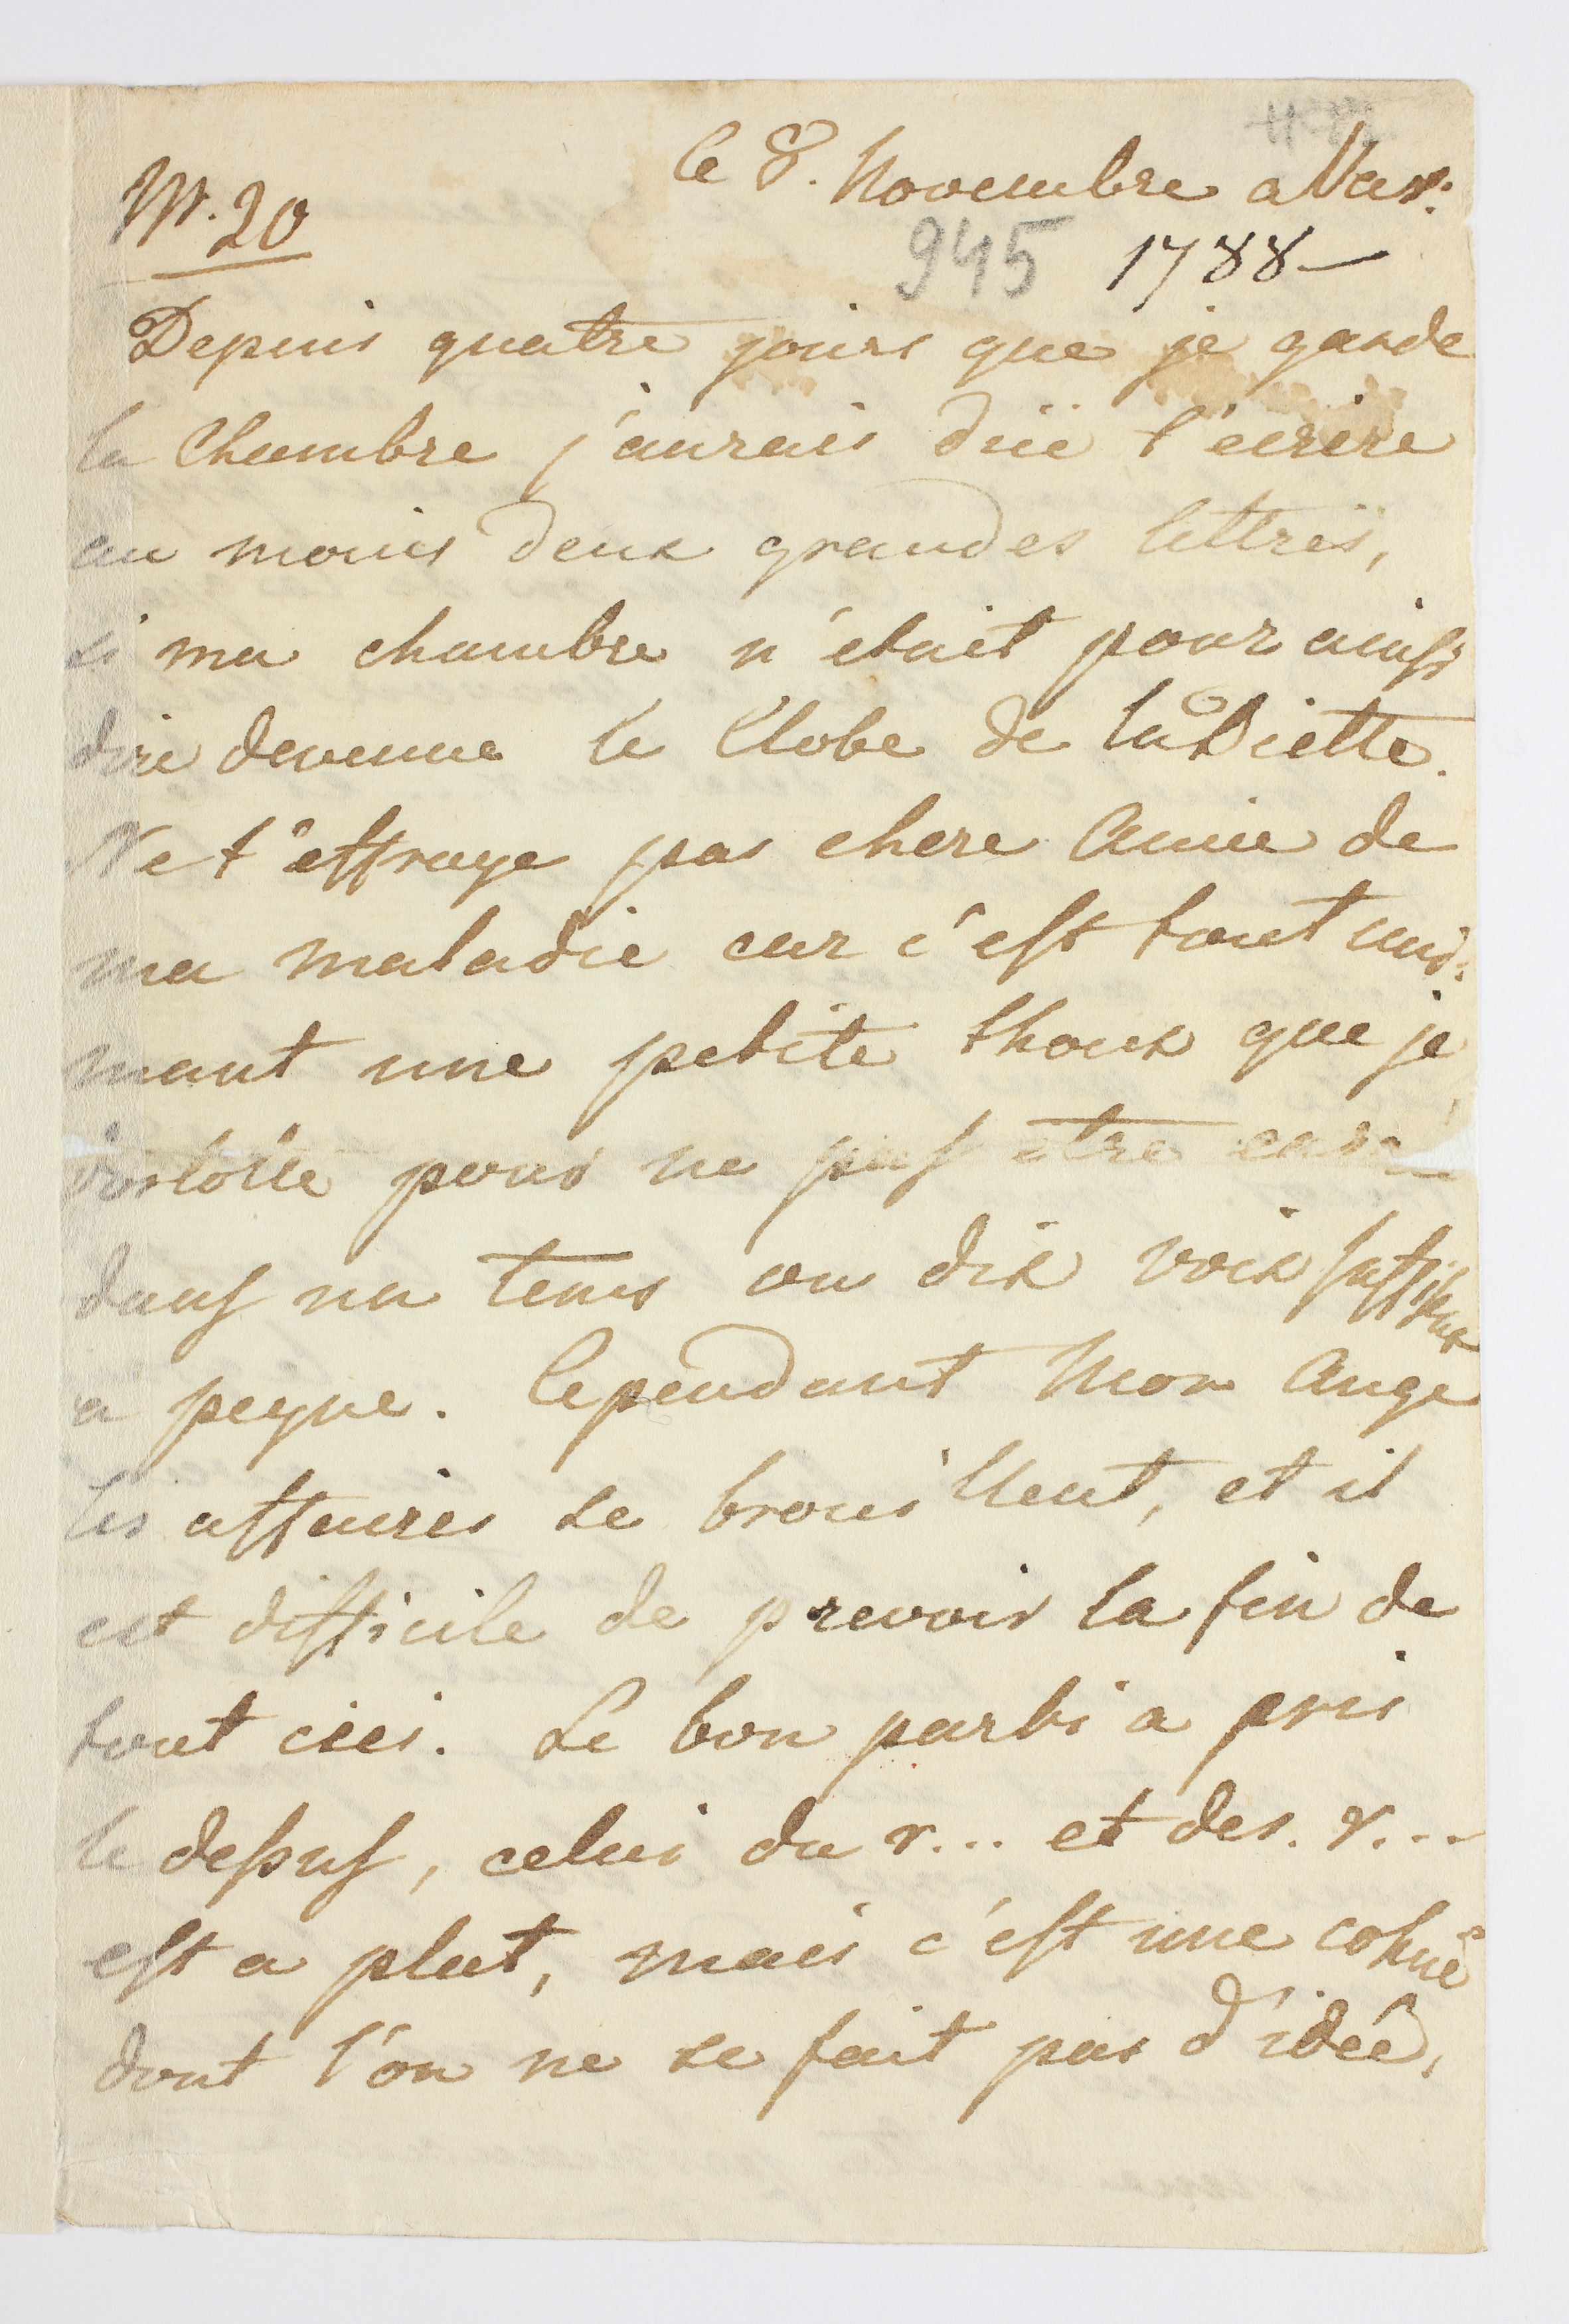 le 8. Novembre a Var:
Nr. 20
945 1788
Depuis quatre jours que je garde
la Chambre j'aurais düe t'ecrire
au moins deux grandes lettres,
si ma chambre n'etait pour ainsi
dire devenue le Clobe de la Diette.
Ne t'effraye pas chere Amie de
ma maladie car c'est tout uni:
mant une petite thoux que je
pour ne pas etre
dans un tems ou dix voix suffisent
a peyne. Cependant Mon Ange
les affaires se brouillent, et il
est difficile de prevoir la fin de
tout ceci. Le bon parti a pris
le dessus, celui du r... et des. r...
est a plat, mais c'est une cohue
dont l'on ne se fait pas d'idée,